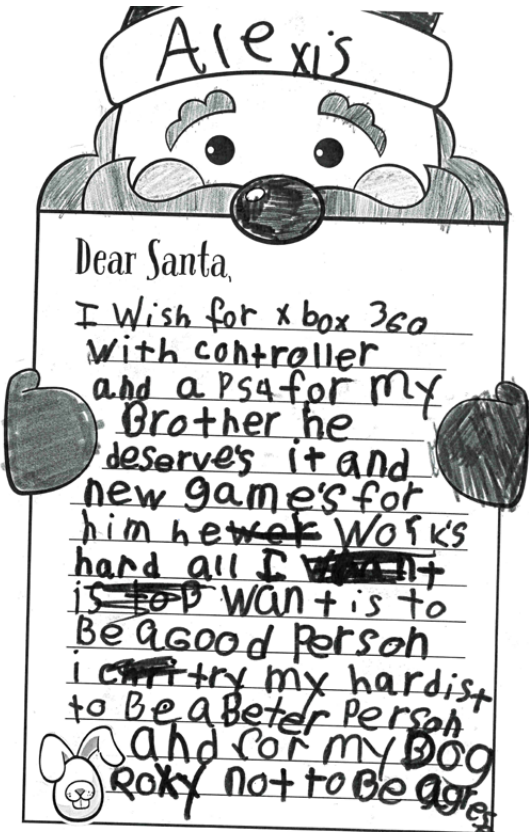 Alexis
Dear Santa,
I Wish for x box 360
with controller
and a PS4 for my
Brother he
deserve's it and
new game's for
him he work's
hard all I
is want is to
Be a Good Person
i try my hardist
to Be a Beter Person
and for my Dog
Roxy not to Be agres